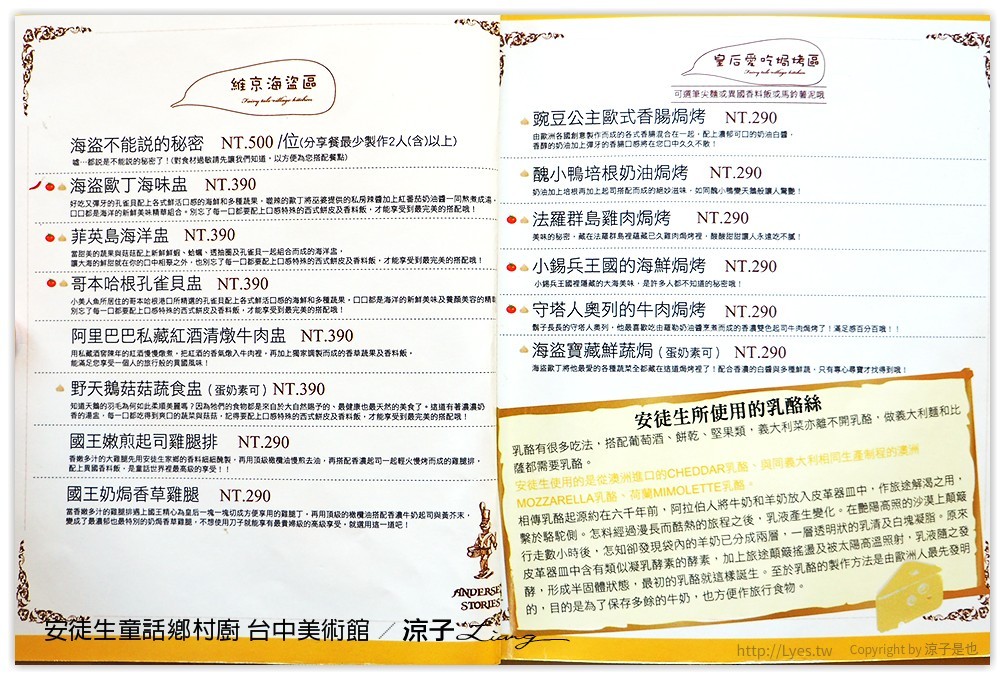 維京海盜區
Fairy tale village kitchen
海盜不能說的秘密 NT.500 /位(分享餐最少製作2人(含)以上)
噓…都說是不能說的秘密了！(對食材過敏請先讓我們知道，以方便為您搭配餐點)
海盜歐丁海味盅 NT.390
好吃又彈牙的孔雀貝配上各式鮮活口感的海鮮和多種蔬果，嗆辣的歐丁將巫婆提供的私房辣醬加上紅蕃茄奶油醬一同熬煮成湯，
口口都是海洋的新鮮美味精華組合。別忘了每一口都要配上口感特殊的西式餅皮及香料飯，才能享受到最完美的搭配哦！
菲英島海洋盅 NT.390
當甜美的蔬果與菇菇配上新鮮鮮蝦、蛤蠣、透抽圈及孔雀貝一起組合而成的海洋盅，
讓大海的鮮甜就在你的口中相聚之外，也別忘了每一口都要配上口感特殊的西式餅皮及香料飯，才能享受到最完美的搭配哦！
哥本哈根孔雀貝盅 NT.390
小美人魚所居住的哥本哈根港口所精選的孔雀貝配上各式鮮活口感的海鮮和多種蔬果，口口都是海洋的新鮮美味及養顏美容的精
別忘了每一口都要配上口感特殊的西式餅皮及香料飯，才能享受到最完美的搭配哦！
阿里巴巴私藏紅酒清燉牛肉盅 NT.390
用私藏酒窖陳年的紅酒慢慢燉煮，把紅酒的香氣燉入牛肉裡，再加上獨家調製而成的香草蔬果及香料飯，
能滿足您享受一個人的旅行般的異國風味！
野天鵝菇菇蔬食盅 (蛋奶素可) NT.390
知道天鵝的羽毛為何如此柔順美麗嗎？因為牠們的食物都是來自於大自然賜予的、最健康也最天然的美食了。這道有著濃濃奶
香的湯盅，每一口都吃得到爽口的蔬菜與菇菇，記得要配上口感特殊的西式餅皮及香料飯，才能享受到最完美的搭配哦！
國王嫩煎起司雞腿排 NT.290
香嫩多汁的大雞腿先用安徒生家鄉的香料細細醃製，再用頂級橄欖油慢煎去油，再搭配香濃起司一起輕火慢烤而成的雞腿排，
配上異國香料飯，是童話世界裡最高級的享受！！
國王奶焗香草雞腿 NT.290
當香嫩多汁的雞腿排遇上國王精心為皇后一塊一塊切成方便享用的雞腿丁，再用頂級的橄欖油搭配香濃牛奶起司與黃芥末，
變成了最濃郁也最特別的奶焗香草雞腿，不想使用刀子就能享有最貴婦級的高級享受，就選用這一道吧！
ANDERSE
STORIES
皇后愛吃焗烤區
Fairy tale village kitchen
可選筆尖麵或異國香料飯或馬鈴薯泥哦
豌豆公主歐式香腸焗烤 NT.290
由歐洲各國創意製作而成的各式香腸混合在一起，配上濃郁可口的奶油白醬，
香醇的奶油加上彈牙的香腸口感將在您口中久久不散！
醜小鴨培根奶油焗烤 NT.290
奶油加上培根再加上起司搭配而成的絕妙滋味，如同醜小鴨變天鵝般讓人驚艷！
法羅群島雞肉焗烤 NT.290
美味的秘密，藏在法羅群島裡蘊藏已久雞肉焗烤裡，酸酸甜甜讓人永遠吃不膩！
小錫兵王國的海鮮焗烤 NT.290
小錫兵王國裡隱藏的大海美味，是許多人都不知道的秘密哦！
守塔人奧列的牛肉焗烤 NT.290
鬍子長長的守塔人奧列，他最喜歡吃由羅勒奶油醬烹煮而成的香濃雙色起司牛肉焗烤了！滿足感百分百哦！！
海盜寶藏鮮蔬焗 (蛋奶素可) NT.290
海盜歐丁將他最愛的各種蔬菜全都藏在這道焗烤裡了！配合香濃的白醬與多種鮮蔬，只有專心尋寶才找得到哦！
安徒生所使用的乳酪絲
乳酪有很多吃法，搭配葡萄酒、餅乾、堅果類，義大利菜亦離不開乳酪，做義大利麵和比
薩都需要乳酪。
安徒生使用的是從澳洲進口的CHEDDAR乳酪、與同義大利相同生產制程的澳洲
MOZZARELLA乳酪、荷蘭MIMOLETTE乳酪。
相傳乳酪起源約在六千年前，阿拉伯人將牛奶和羊奶放入皮革器皿中，作旅途解渴之用，
繫於駱駝側。怎料經過漫長而酷熱的旅程之後，乳液產生變化。在艷陽高照的沙漠上顛簸
行走數小時後，怎知卻發現袋內的羊奶已分成兩層，一層透明狀的乳清及白塊凝脂。原來
皮革器皿中含有類似凝乳酵素的酵素，加上旅途顛簸搖盪及被太陽高溫照射，乳液隨之發
酵，形成半固體狀態，最初的乳酪就這樣誕生。至於乳酪的製作方法是由歐洲人最先發明
的，目的是為了保存多餘的牛奶，也方便作旅行食物。
安徒生童話鄉村廚 台中美術館 ／ 涼子 Liang
http://Lyes.tw Copyright by 涼子是也